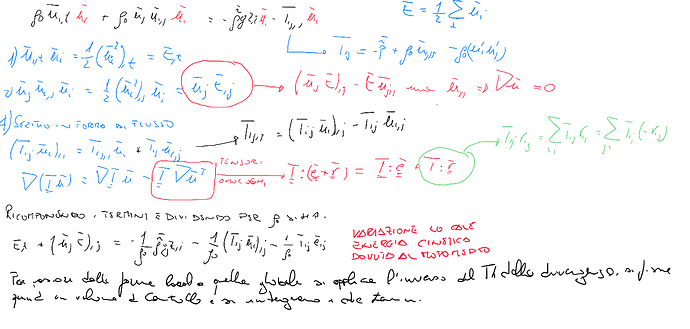 ρ₀ ū_i,t ū_i + ρ₀ ū_j ū_i,j ū_i = -ρ̄ g z_i ū_i - T̄_ij,j ū_i
Ē = 1/2 Σ_i ū_i
T̄_ij = -p̄ + ρ₀ ū_i,j - ρ̄₀(u'_i u'_j)
1) ū_i,t ū_i = 1/2 (ū_i²),t = Ē,t
2) ū_j ū_i,j ū_i = 1/2 (ū_i²),j ū_j = ū_j Ē,j → (ū_j Ē),j - Ē ū_j,j ū_j,j => ∇ū = 0
4) SCRITTO IN FORMA DI FLUSSO
T̄_ij,j = (T̄_ij ū_i),j - T̄_ij ū_i,j
(T̄_ij ū_i),j = T̄_ij,j ū_i + T̄_ij ū_i,j
∇(T̄ ū) = ∇T̄ ū - T̄ ∇ū^T
TENSORI
T̄:(ē+r̄) = T̄:ē + T̄:r̄
T̄_ij r_ij = Σ_ij T̄_ij r_ij = Σ_ji T̄_ij (-r_ij)
RICOMPONENDO I TERMINI E DIVIDENDO PER ρ₀ SI HA:
Ē,t + (ū_j Ē),j = -1/ρ₀ ρ̄ g z_i - 1/ρ₀ (T̄_ij ū_i),j - 1/ρ₀ T̄_ij ē_ij
VARIAZIONE LOCALE
ENERGIA CINETICA
DOVUTA AL MOTO MEDIO
Per passare dalla forma locale a quella globale si applica l'inverso del Th della divergenza, si
quindi un volume di controllo e si integrano i termini.